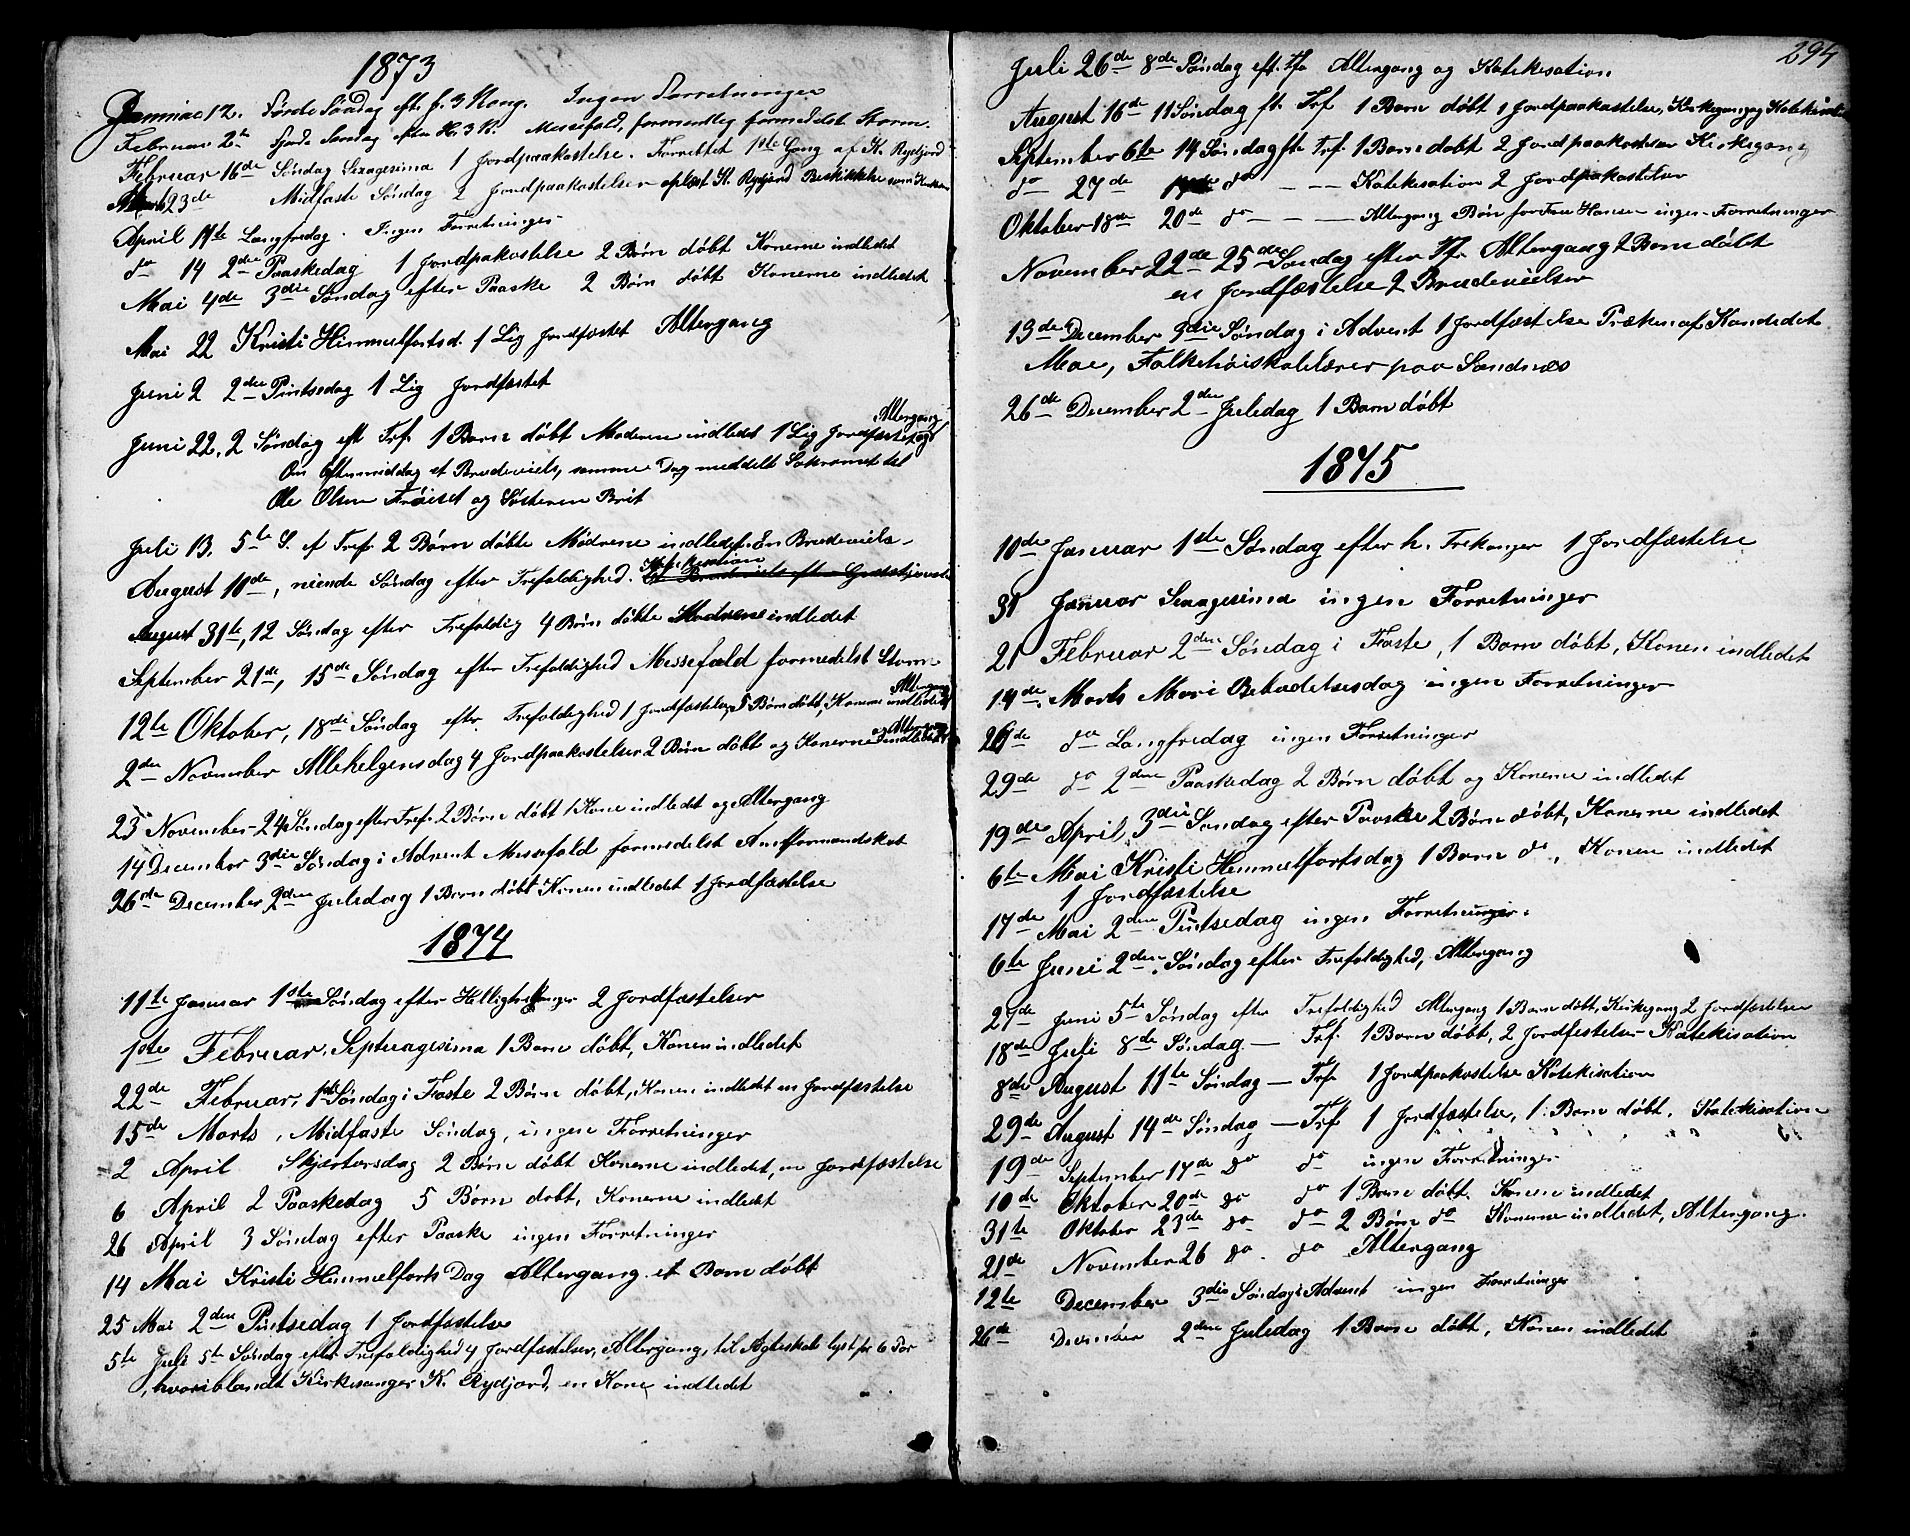 1873
Januar 12. Første Søndag eft. h. 3 Kong. Ingen Forretninger
Februar 2den fjerde Søndag efter H. 3 K. Messefald, formentlig formedelst Storm.
Februar 16de Søndag Sexagesima 1 Jordpaakastelse. Forrettet 1ste Gang af K. Rydjord
Marts 23de Midfaste Søndag 2 Jordpaakastelser oplæst K. Rydjord Beskikkelse som
April 11te Langfredag. Ingen Forretninger
do 14 2den Paaskedag 1 Jordpakastelse 2 Børn døbt Konerne indledet
Mai 4de 3die Søndag efter Paaske 2 Børn døbt Konerne indledet
Mai 22 Kristi Himmelfartsd. 1 Lig jordfæstet Altergang
Juni 2 2den Pintsedag 1 Lig jordfæstet
Altergang
Juni 22, 2 Søndag eft Tref. 1 Barn døbt Moderen indledet 1 Lig jordfæstet og
Om Eftermiddag et Brudeviels, samme Dag meddelt Sakramet til
Ole Olsen Frøiset og Søsteren Brit
Juli 13. 5te S. ef Tref. 2 Børn døbte Mødrene indledet. En Brudeviels.
August 10de, niende Søndag efter Trefoldighed. Katekisation
August 31te, 12 Søndag efter Trefoldig 4 Børn døbte Mødrene indledet
September 21de, 15de Søndag efter Trefoldighed Messefald formedelst Storm
Altergang
12te Oktober, 18de Søndag efter Trefoldighed 1 Jordfæstelse, 5 Børn døbt, Konerne indledet
og Altergang
2den November Allehelgensdag 4 Jordpaakastelser 2 Børn døbt og Konerne indledet
23 November - 24 Søndag efter Tref. 2 Børn døbt 1 Kone indledet og Altergang
14 December 3die Søndag i Advent Messefald formedelst Amtformandskab
26de December 2den Juledag 1 Barn døbt Konen indledet 1 Jordfæstelse
1874
11te Januar 1ste Søndag efter Hellightrekonger 2 Jordfæstelser
1ste Februar, Septuagesima 1 Barn døbt, Konen indledet
22de Februar, 1ste Søndag i Faste 2 Børn døbt, Konen indledet en Jordfæstelse
15de Marts, Midfaste Søndag, ingen Forretninger
2 April Skjertorsdag 2 Børn døbt Konerne indledet, en Jordfæstelse
6 April 2 Paaskedag 5 Børn døbt, Konerne indledet
26 April 3 Søndag efter Paaske ingen Forretninger
14 Mai Kristi Himmelfarts Dag Altergang et Barn døbt
25 Mai 2den Pintsedag 1 Jordfæstelse
5te Juli 5te Søndag efter Trefoldighed 4 Jordfæstelser, Altergang, til Ægteskab lyst for 6 Par
hvoriblandt Kirkesanger K. Rydjord, en Kone indledet
294
Juli 26de 8de Søndag eft. Tr Altergang og Katekisation
August 16de 11 Søndag ft. Trf 1 Barn døbt 1 Jordpaakastelse, Kirkegang og Katekisation
September 6te 14 Søndag ft Trf. 1 Barn døbt 2 Jordpaakastelser Kirkegang
do 27de 17de do - - - Katekisation 2 Jordpakastelser
Oktober 18de 20de do - - - Altergang Bøn for Fru Hansen ingen Forretninger
November 22de 25de Søndag efter Tr. Altergang 2 Børn døbt
en Jordfæstelse 2 Brudevielser
13de December 3die Søndag i Advent 1 Jordfæstelse Præken af Kandidat
Moe, Folkehøiskolelærer paa Sandnæs
26de December 2den Juledag 1 Barn døbt
1875
10de Januar 1ste Søndag efter h. Trekonger 1 Jordfæstelse
31 Januar Sexagesima ingen Forretninger
21 Februar 2den Søndag i Faste, 1 Barn døbt, Konen indledet
14de Marts Mari Bebudelsesdag ingen Forretninger
26de do Langfredag ingen Forretninger
29de do 2den Paaskedag 2 Børn døbt og Konerne indledet
19de April 3die Søndag efter Paaske 2 Børn døbt, Konerne indledet
6te Mai Kristi Himmelfartsdag 1 Barn do, Konen indledet
1 Jordfæstelse
17de Mai 2den Pintsedag ingen Forretninger.
6te Juni 2den Søndag efter Trefoldighed, Altergang
27de Juni 5te Søndag efter Trefoldighed Altergang 1 Barn døbt, Kirkegang 2 Jordfæstelser
18de Juli 8de Søndag — Trf. 1 Barn døbt, 2 Jordfestelser Katekisation
8de August 11te Søndag — Trf. 1 Jordpaakastelse Katekisation
29de August 14de Søndag — Trf 1 Jordfæstelse, 1 Barn døbt. Katekisation
19de September 17de do do ingen Forretninger
10de Oktober 20de do do 1 Barn døbt. Konen indledet
31te Oktober 23de do do 2 Børn do Konerne indledet, Altergang.
21de November 26 do. do Altergang
12te December 3die Søndag i Advent ingen Forretninger
26de December 2den Juledag 1 Barn døbt, Konen indledet